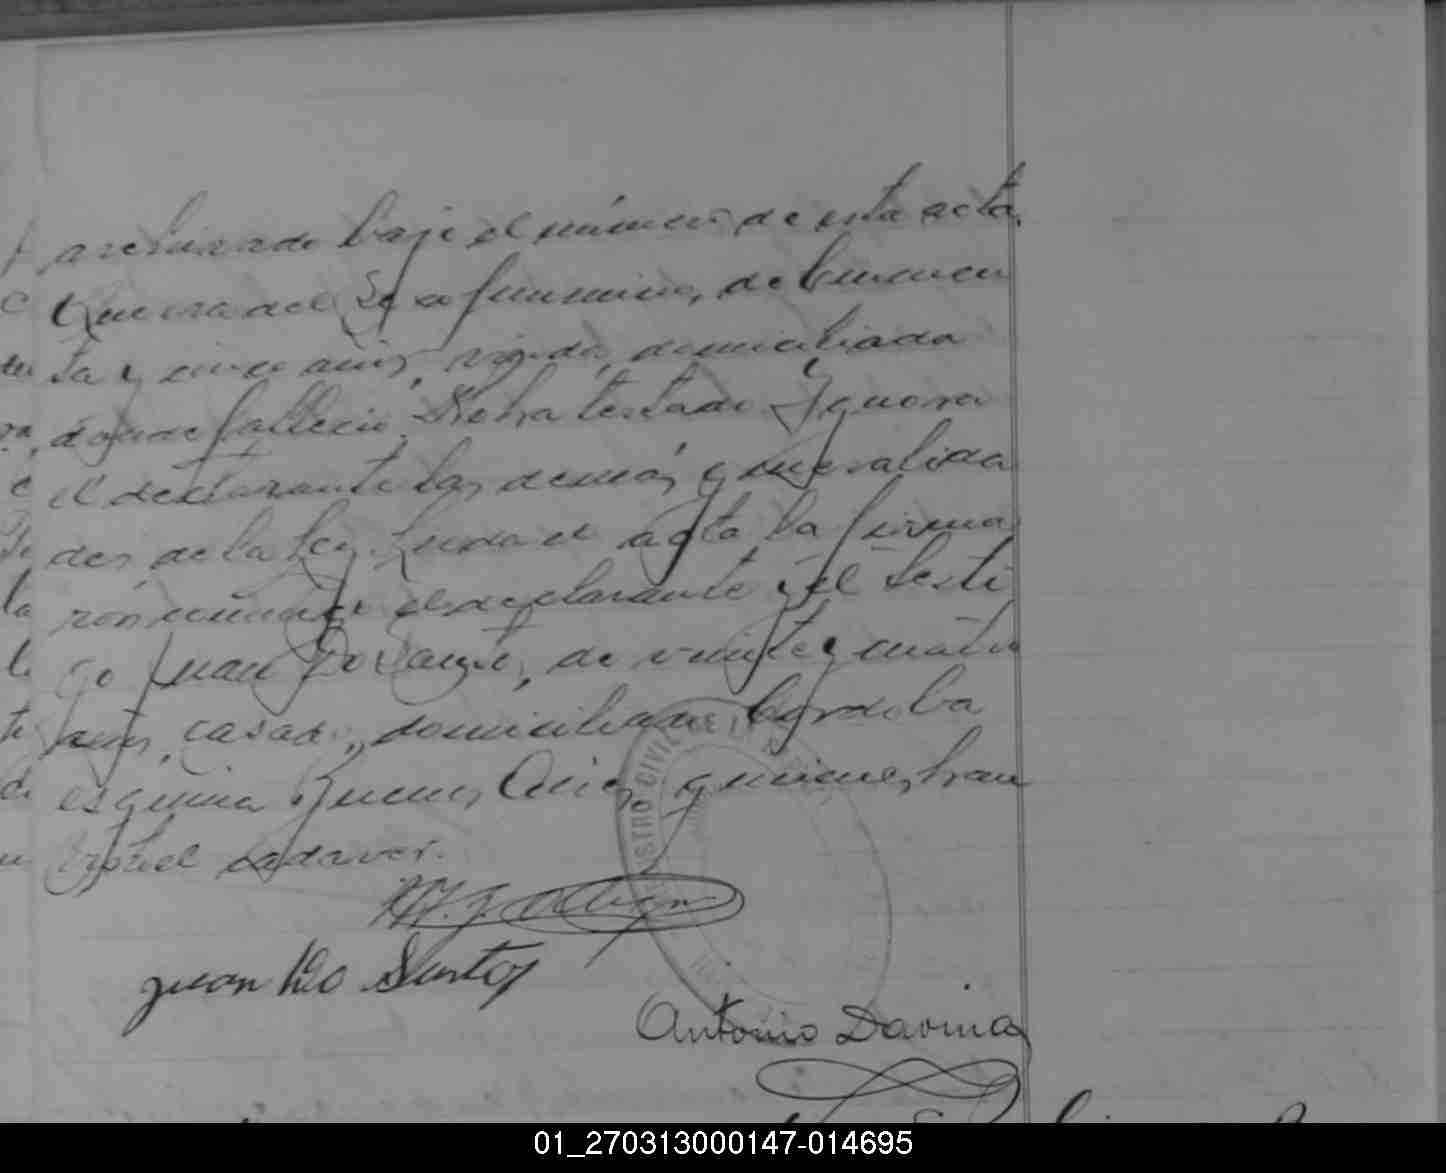 archivado bajo el número de esta acta.
Que era del Sexo femenino, de cincuen
ta y cinco años, viuda, domiciliada
donde falleció. No ha testado. Ignora
el declarante las demás generalida
des de la ley. Leida el acta la firma
ron conmigo el declarante y el testi
go Juan Dos Santos, de veinte y cuatro
años, casado, domiciliado Cordoba
esquina Buenos Aires, quienes han
visto el cadaver.
Juan Do Santos
Antonio Davina
REGISTRO CIVIL DE LA
01_270313000147-014695